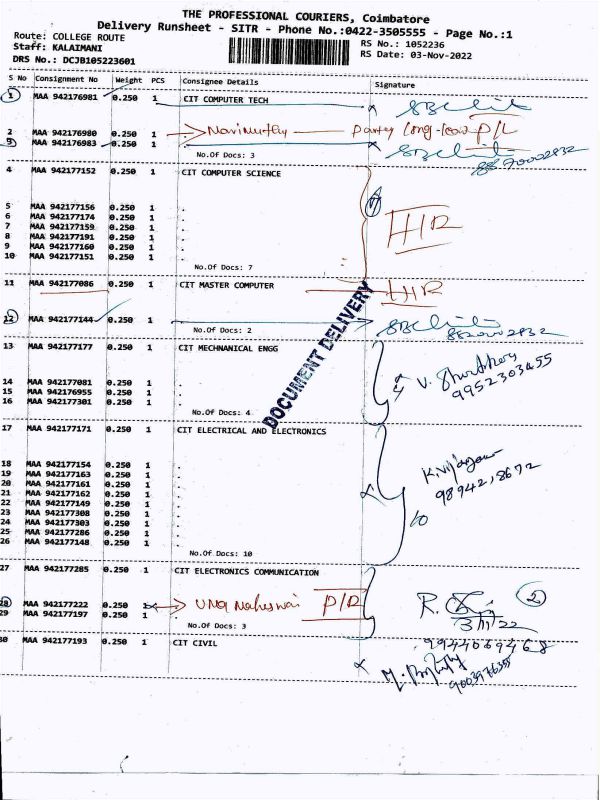 THE PROFESSIONAL COURIERS, Coimbatore
Delivery Runsheet - SITR - Phone No.:0422-3505555 - Page No.:1
Route: COLLEGE ROUTE
Staff: KALAIMANI
DRS No.: DCJB105223601
RS No.: 1052236
RS Date: 03-Nov-2022
S No Consignment No Weight PCS Consignee Details Signature
1 MAA 942176981 0.250 1 CIT COMPUTER TECH
2 MAA 942176980 0.250 1 . Party long-leav P/L
3 MAA 942176983 0.250 1 .
No.Of Docs: 3
8870002832
4 MAA 942177152 0.250 1 CIT COMPUTER SCIENCE
5 MAA 942177156 0.250 1 .
6 MAA 942177174 0.250 1 .
7 MAA 942177159 0.250 1 .
8 MAA 942177191 0.250 1 .
9 MAA 942177160 0.250 1 .
10 MAA 942177151 0.250 1 .
No.Of Docs: 7
11 MAA 942177086 0.250 1 CIT MASTER COMPUTER
12 MAA 942177144 0.250 1 .
No.Of Docs: 2
DOCUMENT DELIVERY
13 MAA 942177177 0.250 1 CIT MECHNANICAL ENGG
14 MAA 942177081 0.250 1 .
15 MAA 942176955 0.250 1 .
16 MAA 942177301 0.250 1 .
No.Of Docs: 4
9952303455
17 MAA 942177171 0.250 1 CIT ELECTRICAL AND ELECTRONICS
18 MAA 942177154 0.250 1 .
19 MAA 942177163 0.250 1 .
20 MAA 942177161 0.250 1 .
21 MAA 942177162 0.250 1 .
22 MAA 942177149 0.250 1 .
23 MAA 942177308 0.250 1 .
24 MAA 942177303 0.250 1 .
25 MAA 942177286 0.250 1 .
26 MAA 942177148 0.250 1 .
No.Of Docs: 10
10
27 MAA 942177285 0.250 1 CIT ELECTRONICS COMMUNICATION
28 MAA 942177222 0.250 1 Uma Maheswai P/R
29 MAA 942177197 0.250 1 .
No.Of Docs: 3
2
3/11/22
30 MAA 942177193 0.250 1 CIT CIVIL
9944069468
9003976355